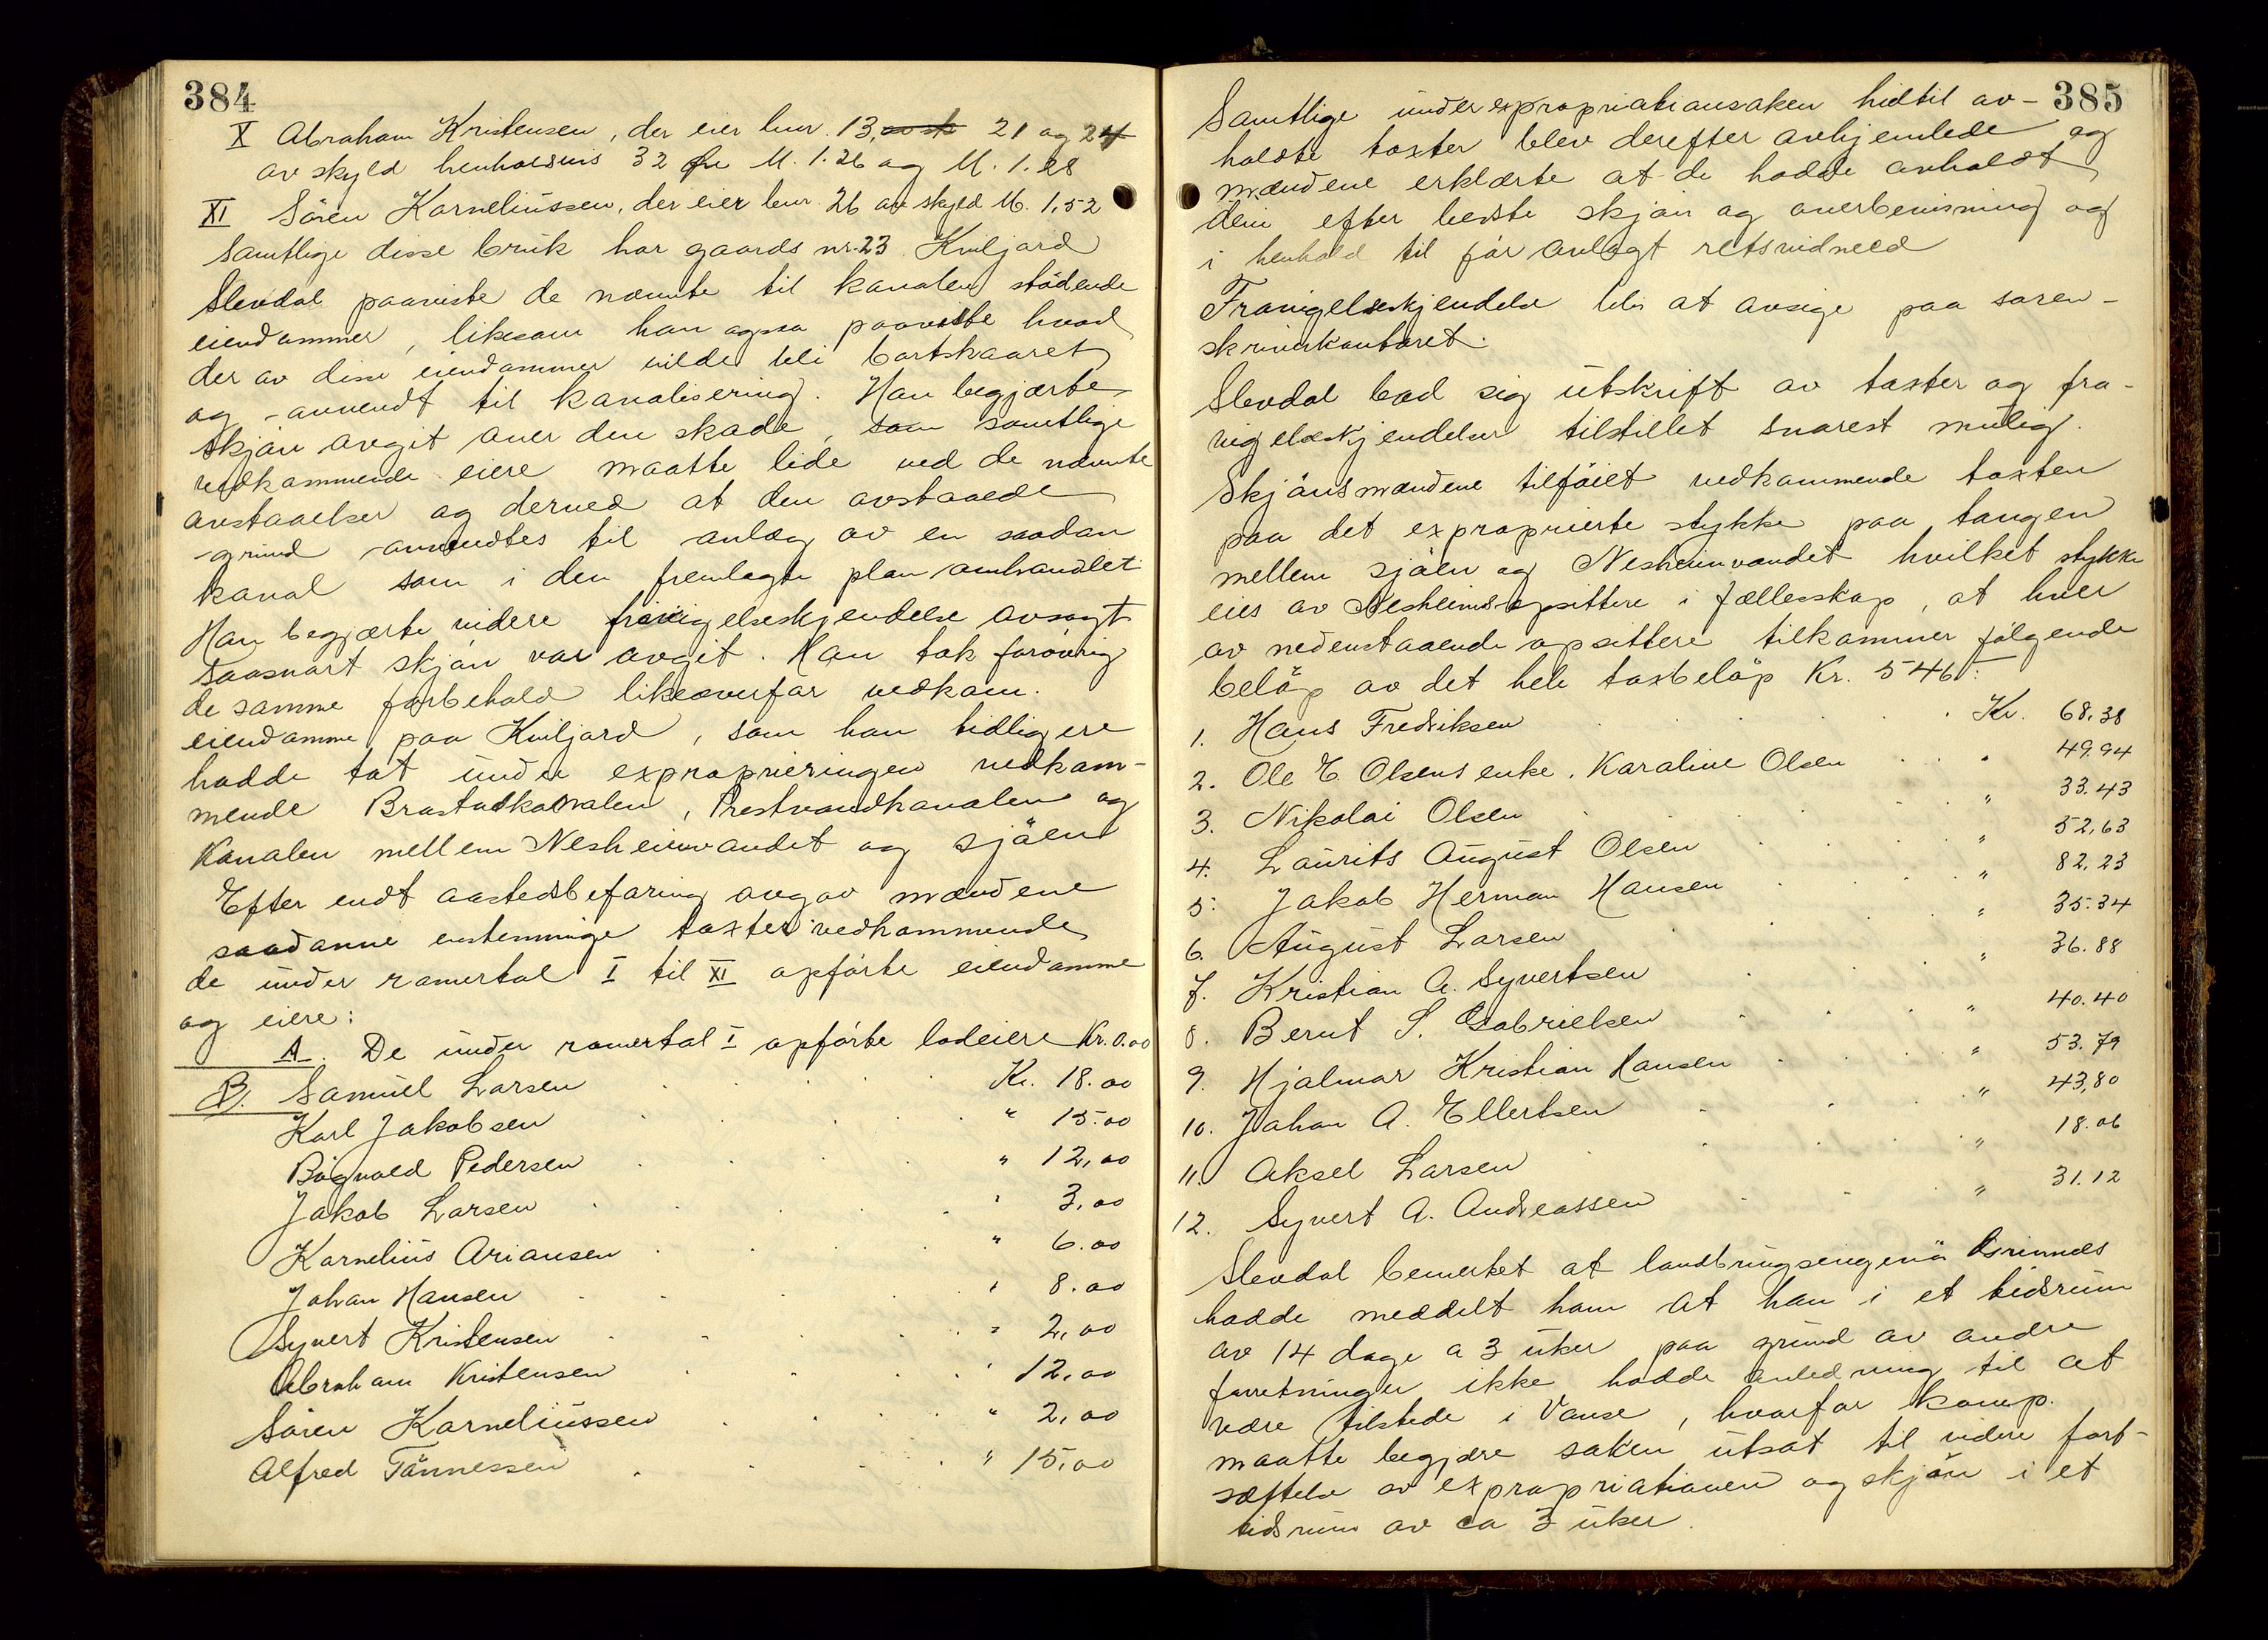 384
X Abraham Kristensen, der eier bnr. 13, 21 og 24
av skyld henholdsvis 32 Øre M. 1.26 og M. 1.28
XI Sören Kornelinssen, der eier bnr. 26 av skyld M. 1,52
Samtlige disse bruk har gaards nr. 23 Kviljord
Slevdal paaviste de nævnte til kanalen stödende
eiendommer, likesom han ogsaa paaviste hvad
der av disse eiendommer vilde bli bortskaaret
og anvendt til kanalisering. Han begjærte
skjön avgit over den skade, som samtlige
vedkommende eiere maatte lide ved de nævnte
avstaaelser og derved at den avstaaede
grund anvendtes til anlæg av en saadan
kanal som i den fremlagte plan omhandlet
Han begjærte videre fravigelseskjendelse avsagt
saasnart skjön var avgit. Han tok forövrig
de samme forbehold likeoverfor vedkom.
eiendomme paa Kviljord, som han tidligere
hadde tat under exproprieringen vedkom-
mende Brastadkanalen, Prestvandkanalen og
Kanalen mellem Nesheimvandet og sjöen
Efter endt aastedsbefaring avgav mændene
saadanne enstemmige taxter vedkommende
de under romertal I til XI opförte eiendomme
og eiere:
A. De under romertal I opförte lodeiere Kr. 0.00
B. Samuel Larsen Kr. 18.00
Karl Jakobsen " 15.00
Bögvald Pedersen " 12,00
Jakob Larsen " 3,00
Kornelius Ariansen " 6.00
Johan Hansen " 8.00
Syvert Kristensen " 2,00
Abraham Kristensen " 12,00
Sören Korneliussen " 2,00
Alfred Tönnessen " 15,00
385
Samtlige under expropriationsaken hidtil av-
holdte taxter blev derefter avhjemlede og
mændene erklærte at de hadde avholdt
dem efter bedste skjön og overbevisning og
i henhold til för avlagt retsvidneed
Fravigelseskjendelse blir at avsige paa soren-
skriverkontoret.
Slevdal bad sig utskrift av taxter og fra-
vigelseskjendelser tilstillet snarest mulig.
Skjönsmændene tilföiet vedkommende taxten
paa det exproprierte stykke paa tangen
mellem sjöen og Nesheimvandet hvilket stykke
eies av Nesheims opsittere i fællesskap, at hver
av nedenstaaende opsittere tilkommer fölgende
belöp av det hele taxbelöp Kr. 546:
1. Hans Fredriksen Kr. 68,38
2. Ole E. Olsens enke, Karoline Olsen " 49.94
3. Nikolai Olsen " 33.43
4. Laurits August Olsen " 52,63
5. Jakob Herman Hansen " 82.23
6. August Larsen " 35.34
7. Kristian A. Syvertsen " 36.88
8. Bernt S. Gabrielsen " 40.40
9. Hjalmar Kristian Hansen " 53.79
10. Johan A. Ellertsen " 43,80
11. Aksel Larsen " 18.06
12. Syvert A. Andreassen " 31.12
Slevdal bemerket at landbruksingeniör
hadde meddelt ham at han i et tidsrum
av 14 dage a 3 uker paa grund av andre
forretninger ikke hadde anledning til at
være tilstede i Vanse, hvorfor komp.
maatte begjære saken utsat til videre fort-
sættelse av expropriationen og skjön i et
tidsrum av ca 3 uker.